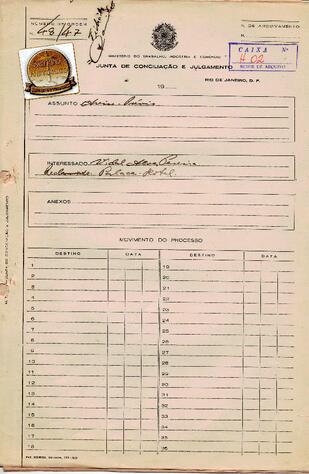 NÚMERO DE ORDEM
N. 48/47
N. DE ARQUIVAMENTO
N.
CAIXA Nº
H 02
SETOR DE ARQUIVO
MINISTÉRIO DO TRABALHO, INDÚSTRIA E COMÉRCIO
JUNTA DE CONCILIAÇÃO E JULGAMENTO
RIO DE JANEIRO, D. F.
19
ASSUNTO Aviso-Prévio
INTERESSADO Vidal Alves Pereira
Reclamado: Palace Hotel.
ANEXOS
MOVIMENTO DO PROCESSO
DESTINO DATA DESTINO DATA
1 19
2 20
3 21
4 22
5 23
6 24
7 25
8 26
9 27
10 28
11 29
12 30
13 31
14 32
15 33
16 34
17 35
18 36